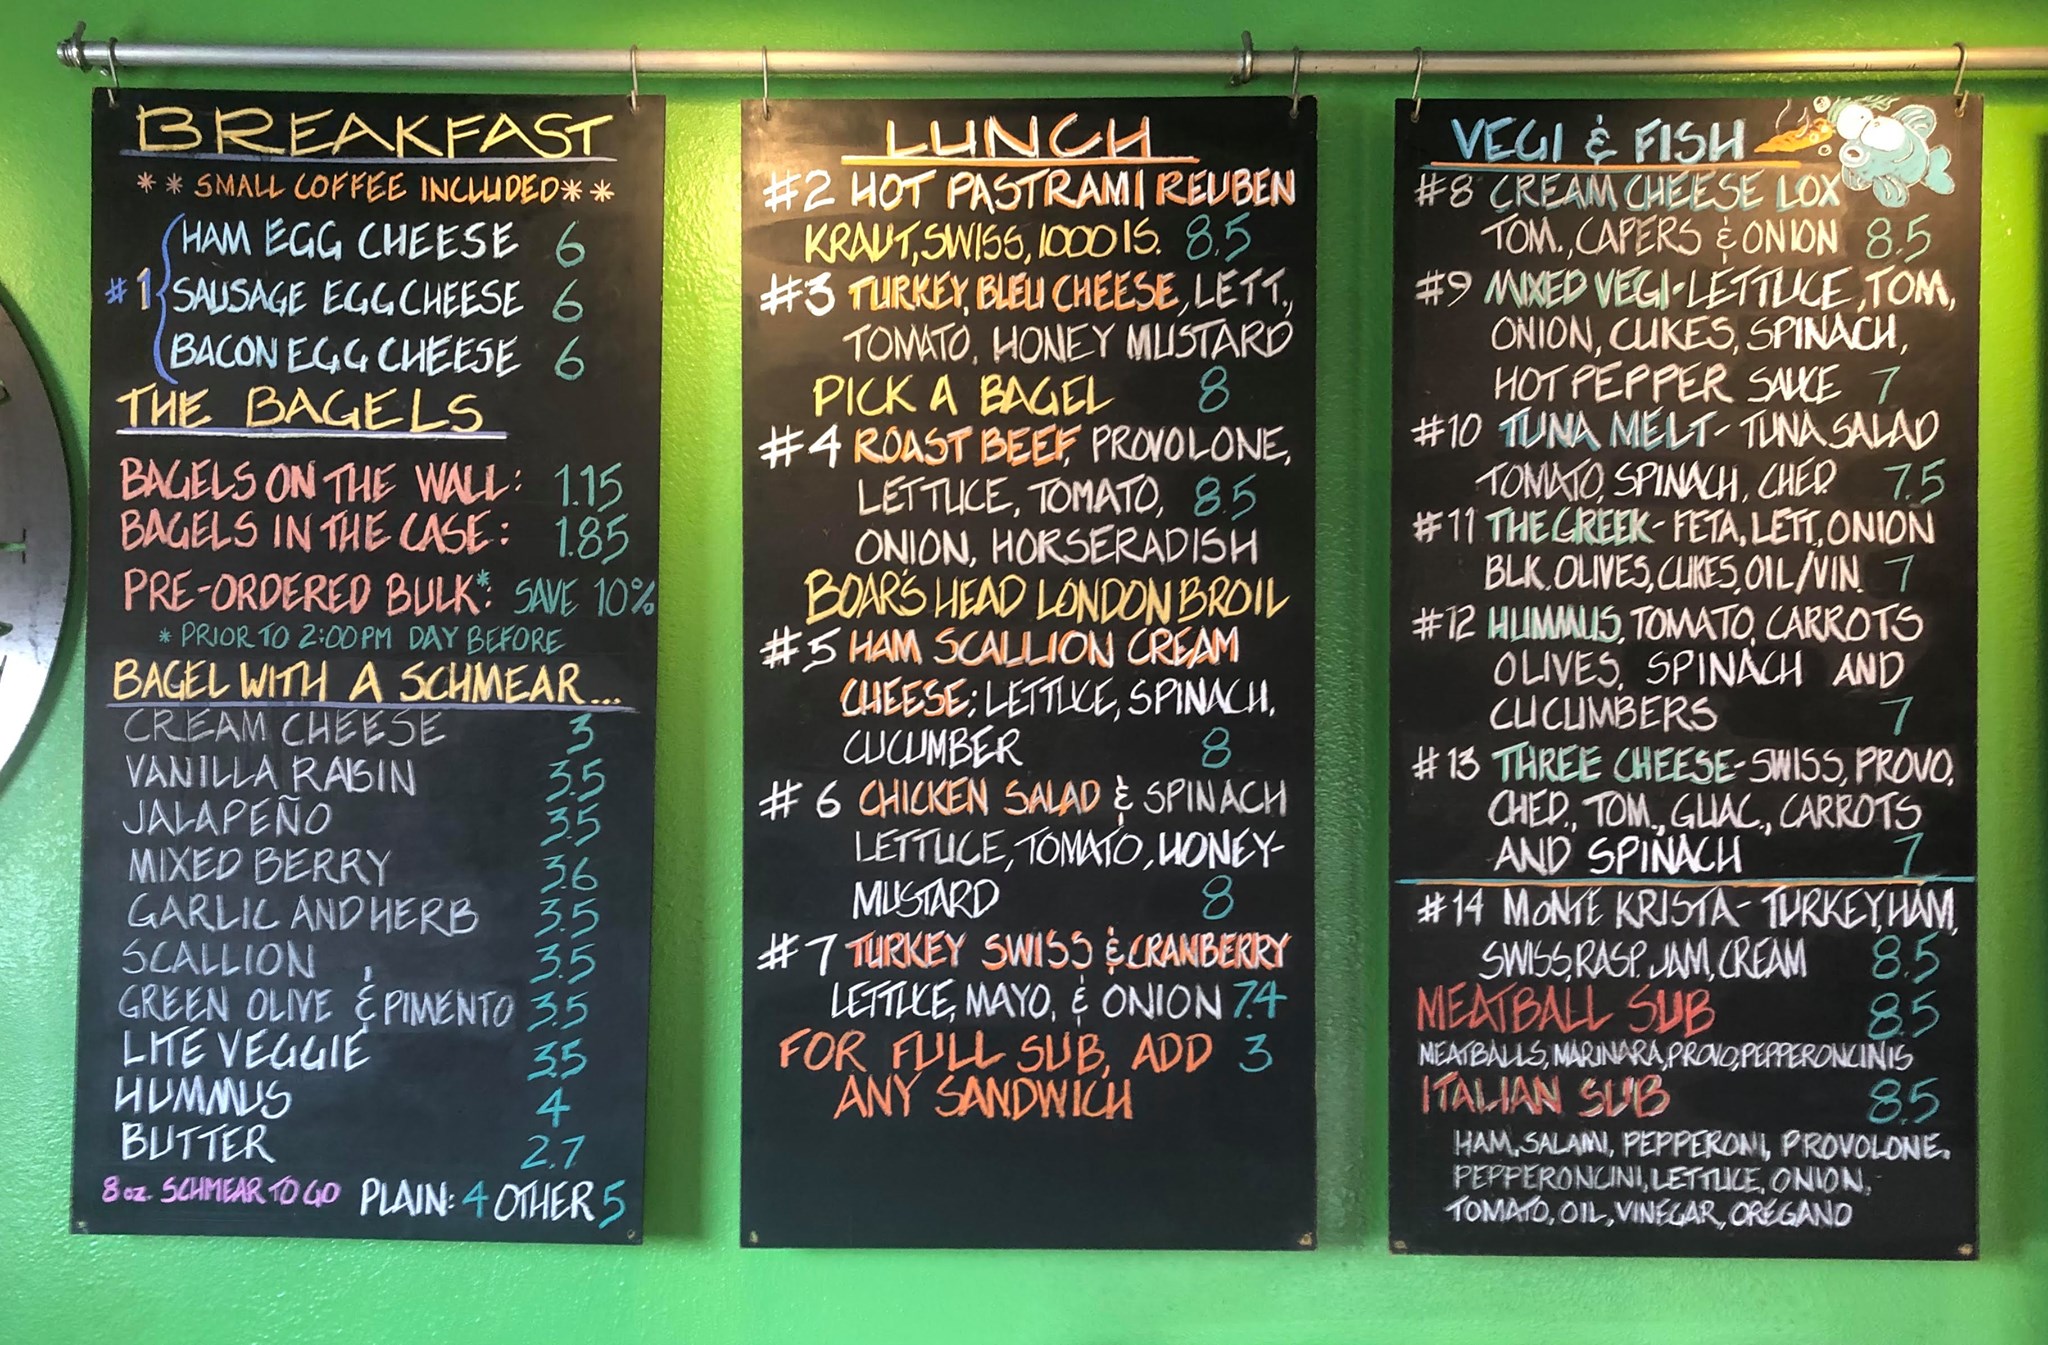 BREAKFAST
** SMALL COFFEE INCLUDED**
#1
HAM EGG CHEESE 6
SAUSAGE EGG CHEESE 6
BACON EGG CHEESE 6
THE BAGELS
BAGELS ON THE WALL: 1.15
BAGELS IN THE CASE: 1.85
PRE-ORDERED BULK*: SAVE 10%
* PRIOR TO 2:00PM DAY BEFORE
BAGEL WITH A SCHMEAR...
CREAM CHEESE 3
VANILLA RAISIN 3.5
JALAPEÑO 3.5
MIXED BERRY 3.6
GARLIC AND HERB 3.5
SCALLION 3.5
GREEN OLIVE & PIMENTO 3.5
LITE VEGGIE 3.5
HUMMUS 4
BUTTER 2.7
8 oz. SCHMEAR TO GO PLAIN: 4 OTHER 5
LUNCH
#2 HOT PASTRAMI REUBEN
KRAUT, SWISS, 1000 IS. 8.5
#3 TURKEY, BLEU CHEESE, LETT.,
TOMATO, HONEY MUSTARD
PICK A BAGEL 8
#4 ROAST BEEF, PROVOLONE,
LETTUCE, TOMATO, 8.5
ONION, HORSERADISH
BOAR'S HEAD LONDON BROIL
#5 HAM SCALLION CREAM
CHEESE; LETTUCE, SPINACH,
CUCUMBER 8
#6 CHICKEN SALAD & SPINACH
LETTUCE, TOMATO, HONEY-
MUSTARD 8
#7 TURKEY SWISS & CRANBERRY
LETTUCE, MAYO, & ONION 7.4
FOR FULL SUB, ADD 3
ANY SANDWICH
VEGI & FISH
#8 CREAM CHEESE LOX
TOM., CAPERS & ONION 8.5
#9 MIXED VEGI-LETTUCE, TOM,
ONION, CUKES, SPINACH,
HOT PEPPER SAUCE 7
#10 TUNA MELT- TUNA SALAD
TOMATO, SPINACH, CHED. 7.5
#11 THE GREEK- FETA, LETT, ONION
BLK. OLIVES, CUKES, OIL/VIN. 7
#12 HUMMUS, TOMATO, CARROTS
OLIVES, SPINACH AND
CUCUMBERS 7
#13 THREE CHEESE-SWISS, PROVO,
CHED., TOM., GUAC., CARROTS
AND SPINACH 7
#14 MONTE KRISTA- TURKEY, HAM,
SWISS, RASP. JAM, CREAM 8.5
MEATBALL SUB 8.5
MEATBALLS, MARINARA, PROVO, PEPPERONCINIS
ITALIAN SUB 8.5
HAM, SALAMI, PEPPERONI, PROVOLONE,
PEPPERONCINI, LETTUCE, ONION,
TOMATO, OIL, VINEGAR, OREGANO